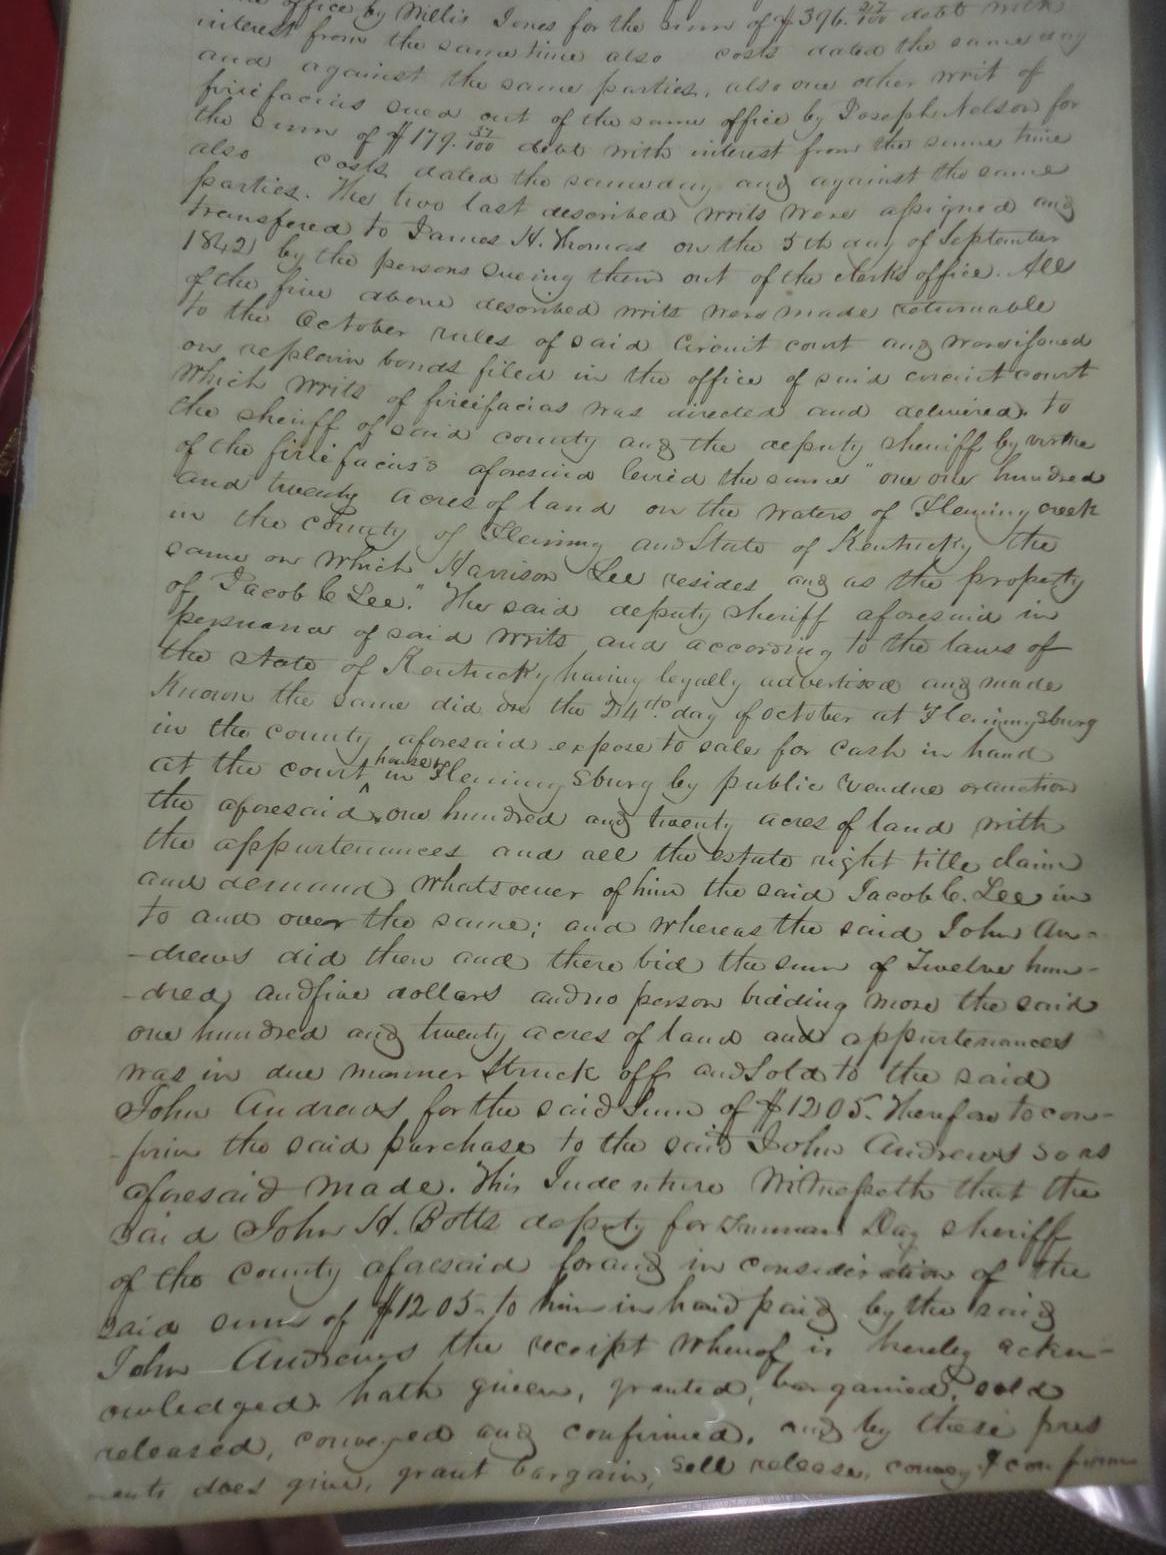 office by Willis Jones for the sum of $396. 37/100 debt with
interest from the same time also costs dated the same day
and against the same parties, also one other writ of
firifacias sued out of the same office by Joseph Nelson for
the sum of $179. 37/100 debt with interest from the same time
also costs dated the same day and against the same
parties. The two last described writs were assigned and
transfered to James H. Thomas on the 5th day of September
1842 by the persons sueing them out of the clerks office. All
of the five above described writs were made returnable
to the October rules of said Circuit court and were issued
on replevin bonds filed in the office of said circuit court
which writs of firifacias was directed and delivered to
the sheriff of said county and the deputy sheriff by virtue
of the firifacias's aforesaid levied the same "on one hundred
and twenty acres of land on the waters of Fleming creek
in the county of Fleming and State of Kentucky the
same on which Harrison Lee resides and as the property
of Jacob C Lee." The said deputy sheriff aforesaid in
persuance of said writs and according to the laws of
the state of Kentucky having legally advertised and made
known the same did on the 24th day of October at Flemingsburg
in the county aforesaid expose to sale for cash in hand
at the court ^ house in Flemingsburg by public vendue or auction
the aforesaid one hundred and twenty acres of land with
the appurtenances and all the estate right title claim
and demand whatsoever of him the said Jacob C. Lee in
to and over the same; and whereas the said John An-
-drews did then and there bid the sum of Twelve hun-
-dred and five dollars and no person bidding more the said
one hundred and twenty acres of land and appurtenances
was in due manner Struck off and Sold to the said
John Andrews for the said Sum of $1205. Therefore to con-
-firm the said purchase to the said John Andrews so as
aforesaid made. This Indenture Witnesseth that the
said John H. Botts deputy for Day sheriff
of the county aforesaid for and in consideration of the
said sum of $1205 to him in hand paid by the said
John Andrews the receipt whereof is hereby ackn-
owledged. hath given, granted, bargained, sold
released, conveyed and confirmed, and by these pres
ents does give, grant bargain, Sell release, convey & confirm